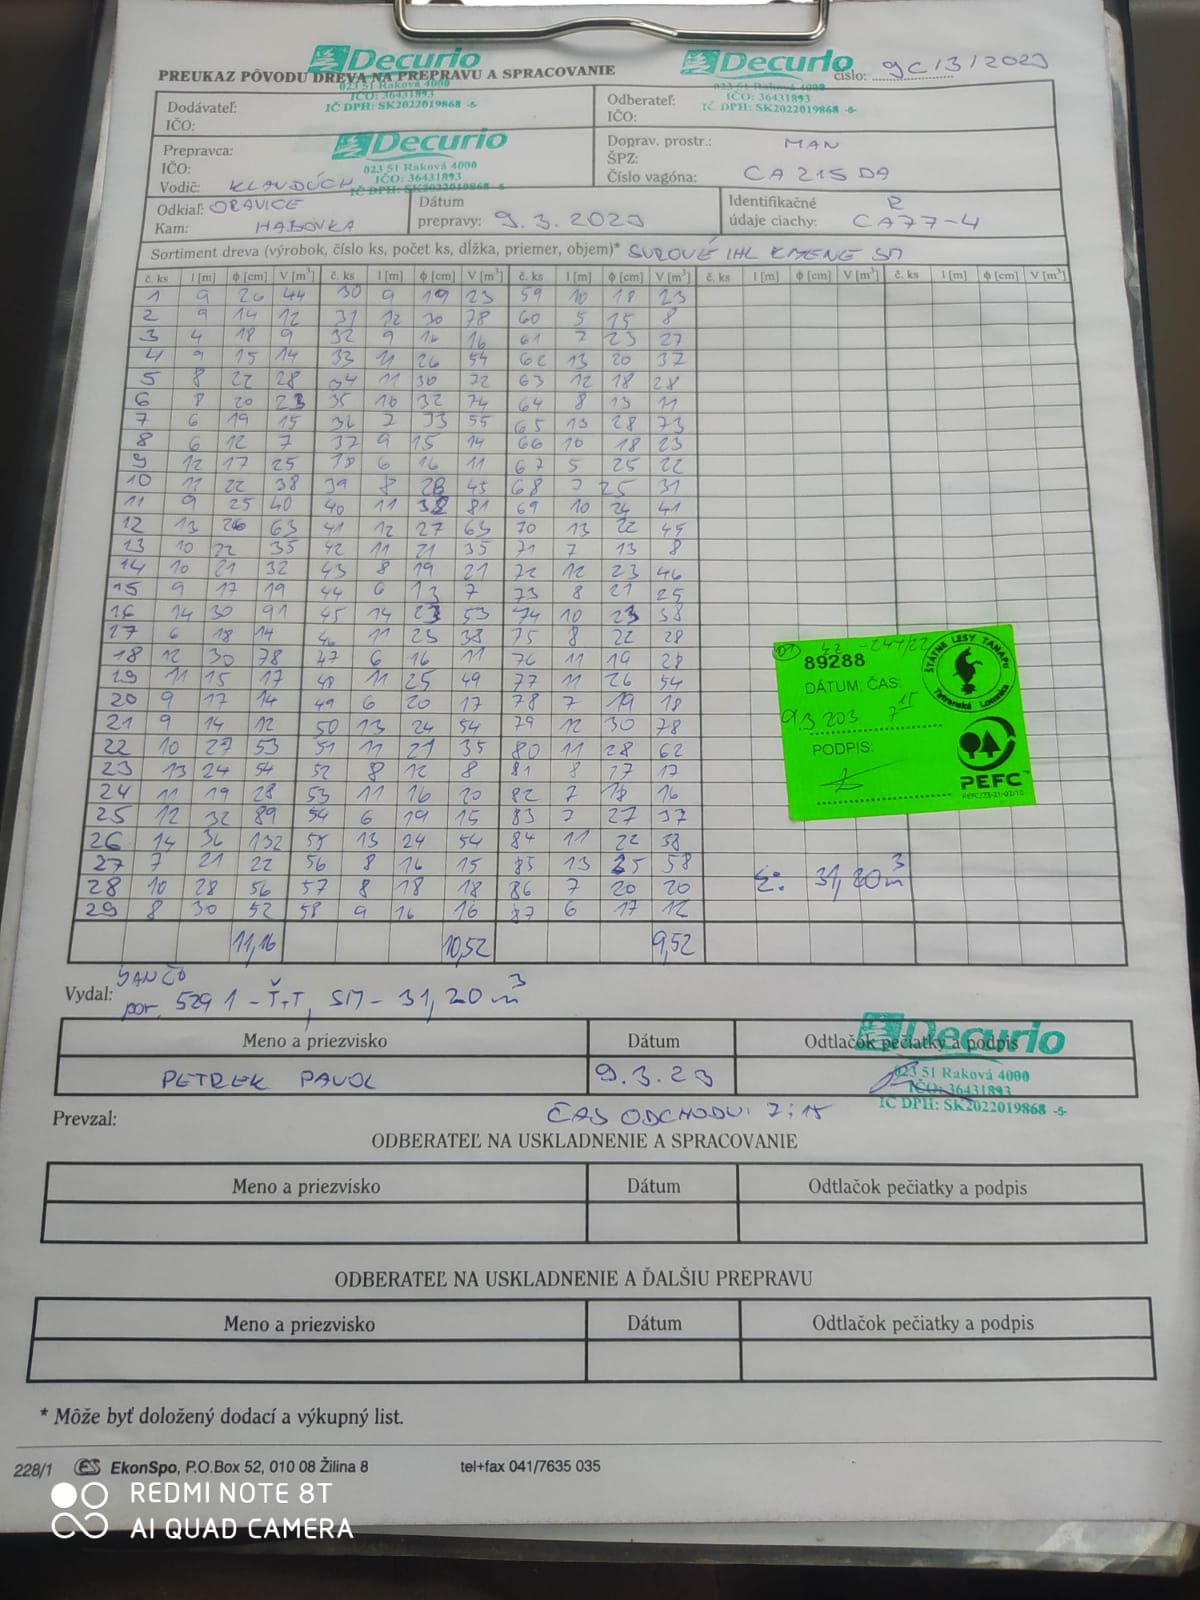 Decurio
Decurio
PREUKAZ PÔVODU DREVA NA PREPRAVU A SPRACOVANIE
číslo: 9C/3/2023
023 51 Raková 4000
IČO: 36431893
IČ DPH: SK2022019868 -5-
023 51 Raková 4000
IČO: 36431893
IČ DPH: SK2022019868 -5-
Dodávateľ:
IČO:
Odberateľ:
IČO:
Decurio
023 51 Raková 4000
IČO: 36431893
IČ DPH: SK2022019868 -5-
Prepravca:
IČO:
Vodič: KLAUDÚCH
Doprav. prostr.: MAN
ŠPZ:
Číslo vagóna: CA 215 DA
Odkiaľ: ORAVICE
Kam: HABOVKA
Dátum
prepravy: 9.3.2023
Identifikačné R
údaje ciachy: CA77-4
Sortiment dreva (výrobok, číslo ks, počet ks, dĺžka, priemer, objem)* SUROVÉ IHL KMENE SM
č. ks l [m] φ [cm] V [m³] č. ks l [m] φ [cm] V [m³] č. ks l [m] φ [cm] V [m³] č. ks l [m] φ [cm] V [m³] č. ks l [m] φ [cm] V [m³]
1 9 26 44 30 9 19 23 59 10 18 23
2 9 14 12 31 12 30 78 60 5 15 8
3 4 18 9 32 9 16 16 61 7 23 27
4 9 15 14 33 11 26 54 62 13 20 37
5 8 22 28 34 11 30 72 63 12 18 28
6 8 20 23 35 10 32 74 64 8 13 11
7 6 19 15 36 7 33 55 65 13 28 73
8 6 12 7 37 9 15 14 66 10 18 23
9 12 17 25 38 6 16 11 67 5 25 22
10 11 22 38 39 8 28 45 68 7 25 31
11 9 25 40 40 11 32 81 69 10 24 41
12 13 26 63 41 12 27 63 70 13 22 45
13 10 22 35 42 11 21 35 71 7 13 8
14 10 21 32 43 8 19 21 72 12 23 46
15 9 17 19 44 6 13 7 73 8 21 25
16 14 30 91 45 14 23 53 74 10 23 38
17 6 18 14 46 11 23 38 75 8 22 28
18 12 30 78 47 6 16 11 76 11 19 28
19 11 15 17 48 11 25 49 77 11 26 54
20 9 17 14 49 6 20 17 78 7 19 18
21 9 14 12 50 13 24 54 79 12 30 78
22 10 27 53 51 11 21 35 80 11 28 62
23 13 24 54 52 8 12 8 81 8 17 17
24 11 19 28 53 11 16 20 82 7 18 16
25 12 32 89 54 6 19 15 83 7 27 37
26 14 36 132 55 13 24 54 84 11 22 38
27 7 21 22 56 8 16 15 85 13 25 58
28 10 28 56 57 8 18 18 86 7 20 20
29 8 30 52 58 9 16 16 87 6 17 12
11,16 10,52 9,52
89288
DÁTUM: ČAS:
9.3 203 7 15
PODPIS:
ŠTÁTNE LESY TANAPU
Tatranská Lomnica
PEFC™
Σ: 31,20 m³
JANČO
Vydal: por. 529 1 - Ť.T, SM - 31,20 m³
Meno a priezvisko Dátum Odtlačok pečiatky a podpis
Decurio
PETREK PAVOL 9.3.23
023 51 Raková 4000
IČO: 36431893
IČ DPH: SK2022019868 -5-
Prevzal: ČAS ODCHODU: 7:15
ODBERATEĽ NA USKLADNENIE A SPRACOVANIE
Meno a priezvisko Dátum Odtlačok pečiatky a podpis
ODBERATEĽ NA USKLADNENIE A ĎALŠIU PREPRAVU
Meno a priezvisko Dátum Odtlačok pečiatky a podpis
* Môže byť doložený dodací a výkupný list.
228/1 ES EkonSpo, P.O.Box 52, 010 08 Žilina 8 tel+fax 041/7635 035
REDMI NOTE 8T
AI QUAD CAMERA